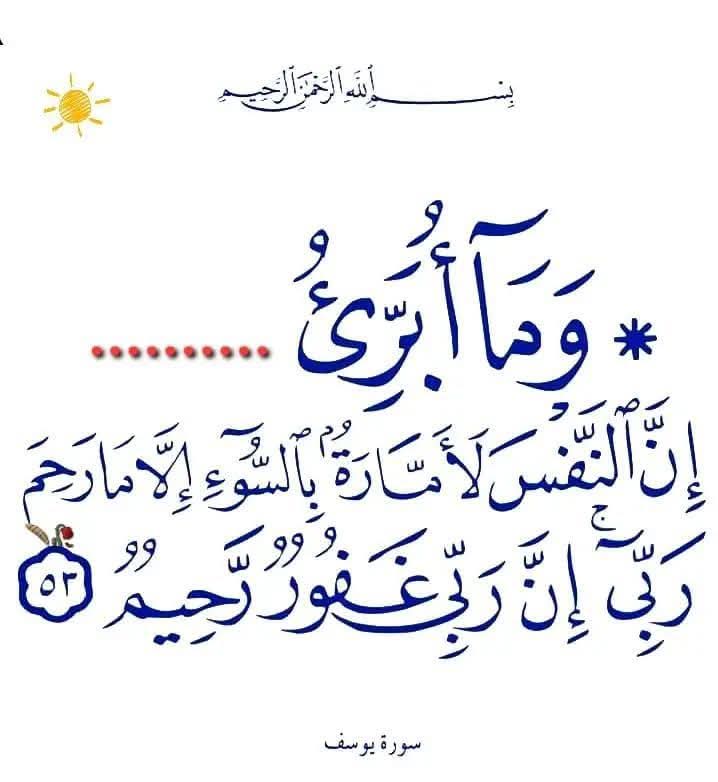 بِسْمِ ٱللَّهِ ٱلرَّحْمَٰنِ ٱلرَّحِيمِ
* وَمَآ أُبَرِّئُ ..........
إِنَّ ٱلنَّفْسَ لَأَمَّارَةُۢ بِٱلسُّوٓءِ إِلَّا مَا رَحِمَ
رَبِّىٓ ۚ إِنَّ رَبِّى غَفُورٌ رَّحِيمٌ ٥٣
سورة يوسف